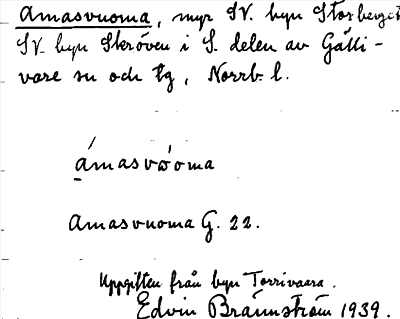 Amasvuoma, myr SV. byn Storberget
SV. byn Skröven i S. delen av Gälli-
vare sn och tg, Norrb. l.
ámasvὼoma
Amasvuoma G. 22.
Uppgiften från byn Torrivaara.
Edvin Brännström 1939.